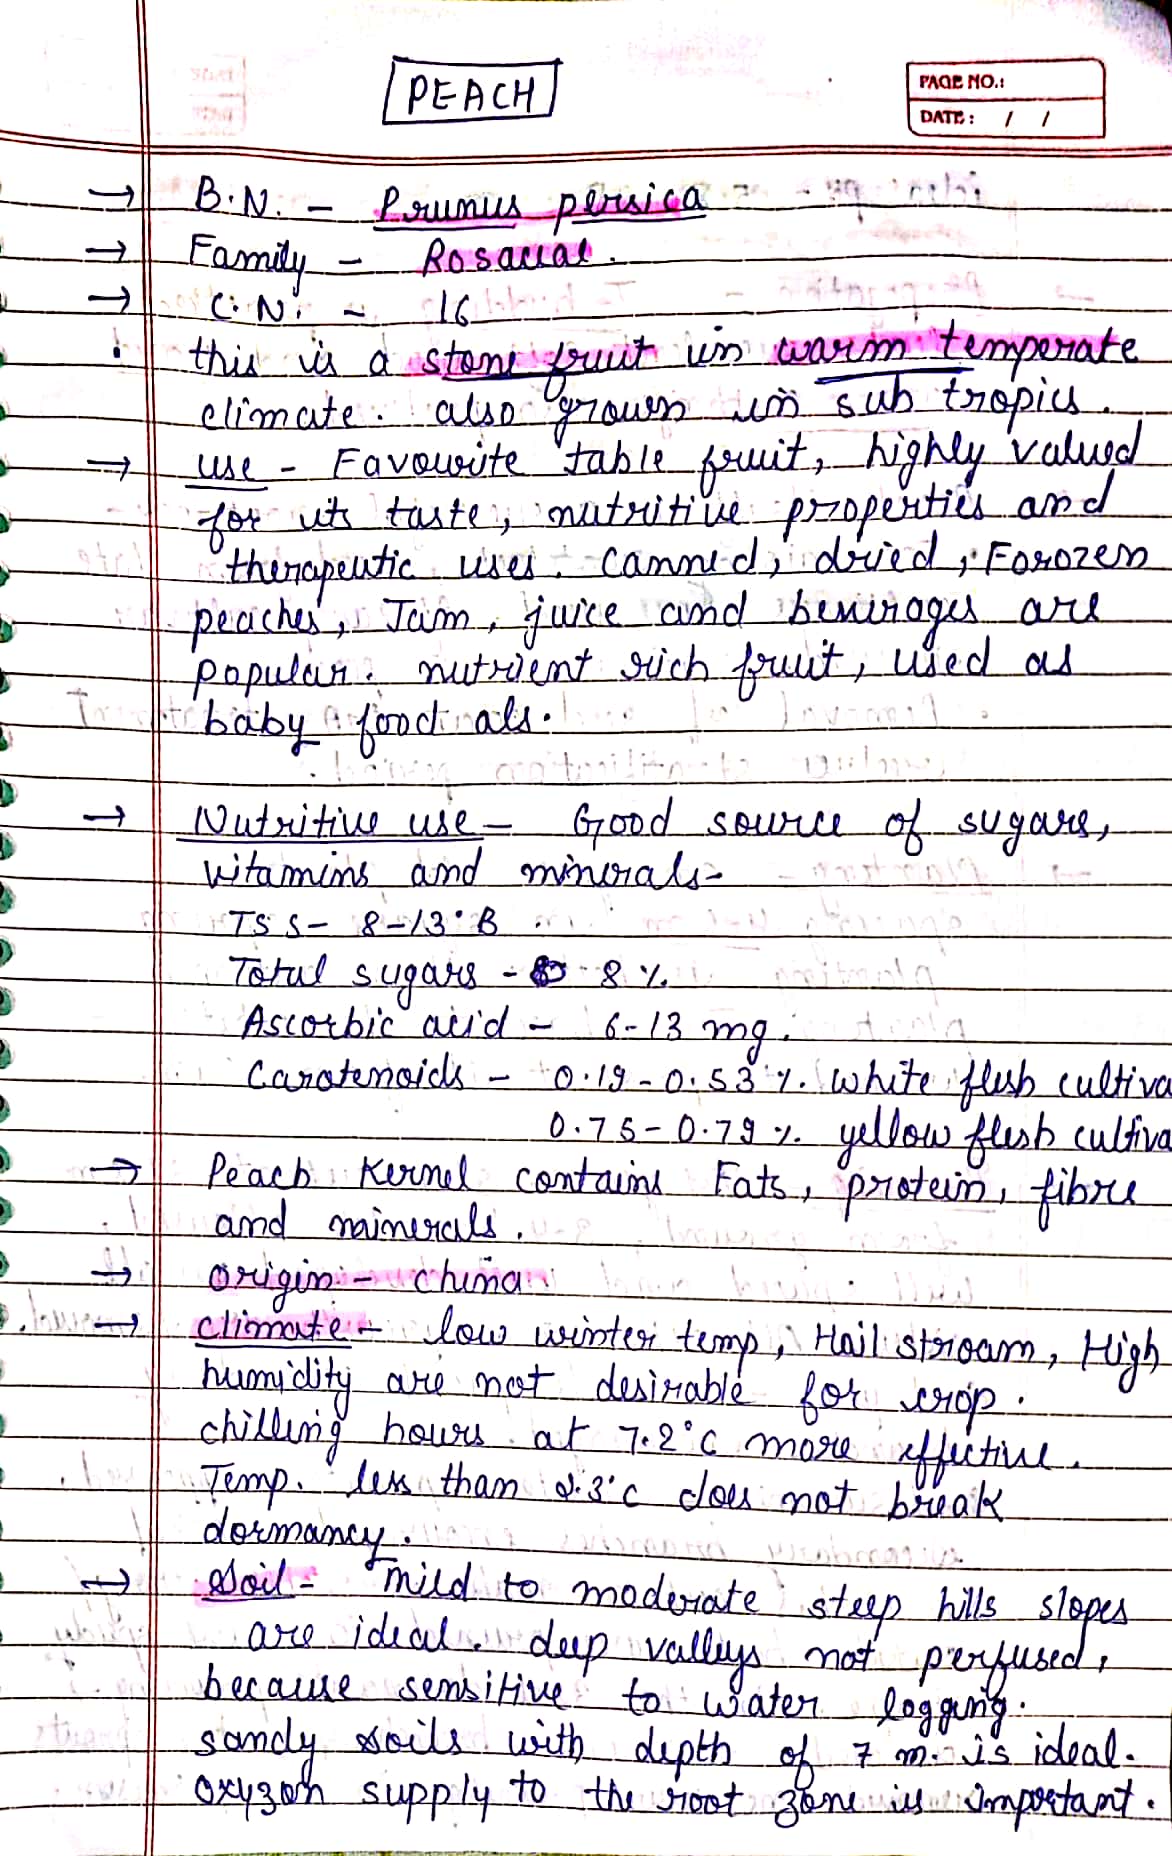 PEACH
PAGE NO.:
DATE: / /
→ B.N. - Prunus persica
→ Family - Rosaceae.
→ C.N. - 16
• this is a stone fruit in warm temperate
climate. also grown in sub tropics.
→ use - Favourite table fruit, highly valued
for its taste, nutritive properties and
therapeutic uses. Canned, dried, Forozen
peaches, Jam, juice and beverages are
popular. nutrient rich fruit, used as
baby food als.
→ Nutritive use - Good source of sugars,
vitamins and minerals-
TSS- 8-13°B
Total sugars - 8 %.
Ascorbic acid - 6-13 mg.
Carotenoids - 0.19-0.53 %. white flesh cultiva
0.75-0.79 %. yellow flesh cultiva
→ Peach Kernel contains Fats, protein, fibre
and minerals.
→ origin - china
→ climate - low winter temp, Hail stroam, High
humidity are not desirable for crop.
chilling hours at 7.2°c more effective.
Temp. less than 2.3°c does not break
dormancy.
→ Soil - mild to moderate steep hills slopes
are ideal. deep valleys not perfused,
because sensitive to water logging.
sandy soils with depth of 7 m. is ideal.
oxyzon supply to the root zone is important.